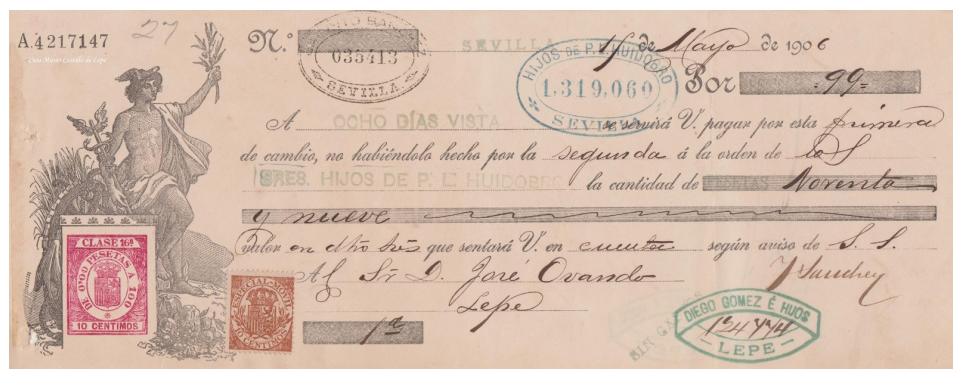 A.4217147
27
Casa Museo Castillo de Lepe
N.º
035413
SEVILLA
SEVILLA
de Mayo de 1906
HIJOS DE P. L. HUIDOBRO
1.319,060
SEVILLA
Por 99
A OCHO DÍAS VISTA se servirá V. pagar por esta primera
de cambio, no habiéndolo hecho por la segunda á la orden de los S
SRES. HIJOS DE P. L. HUIDOBRO la cantidad de PESETAS Noventa
y nueve
valor en que sentará V. en cuenta según aviso de S. S.
Al Sr. D. José Ovando
Lepe
CLASE 16ª
DE 0'00 PESETAS A 100
10 CENTIMOS
ESPECIAL MOVIL
10 CENTIMOS
1ª
DIEGO GOMEZ É HIJOS
LEPE
SIN GAS